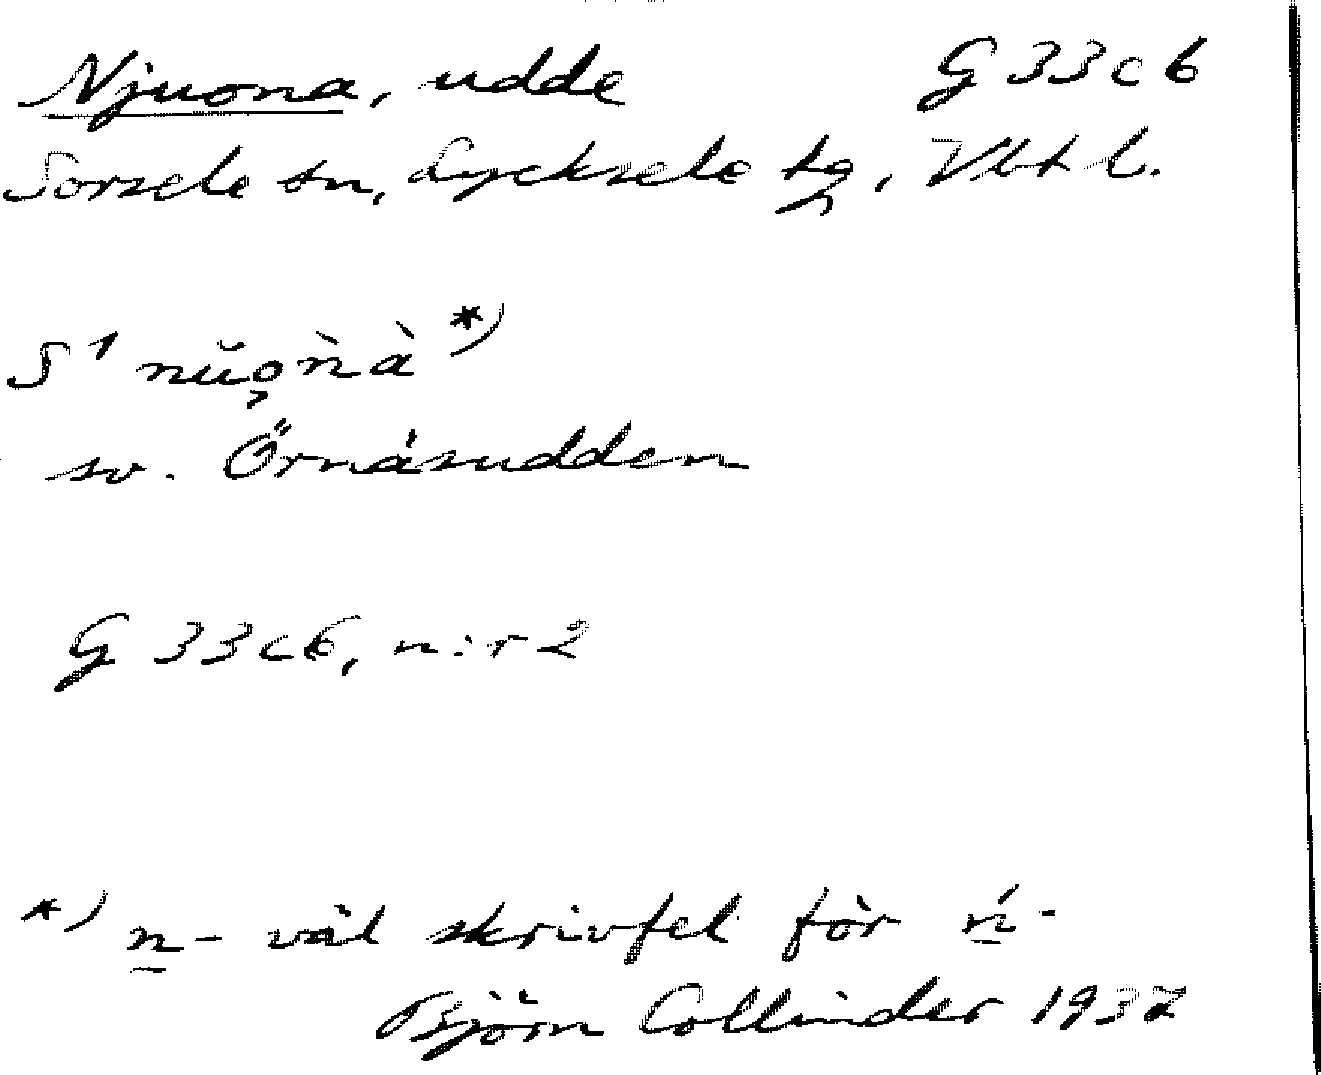 Njuona, udde G 33 c 6
Sorsele sn, Lycksele tg, Vbt l.
S¹ nŭo̧ǹà *)
sv. Örnäsudden
G 33 c 6, n:r 2
*) n- väl skrivfel för ń-
Björn Collinder 1937